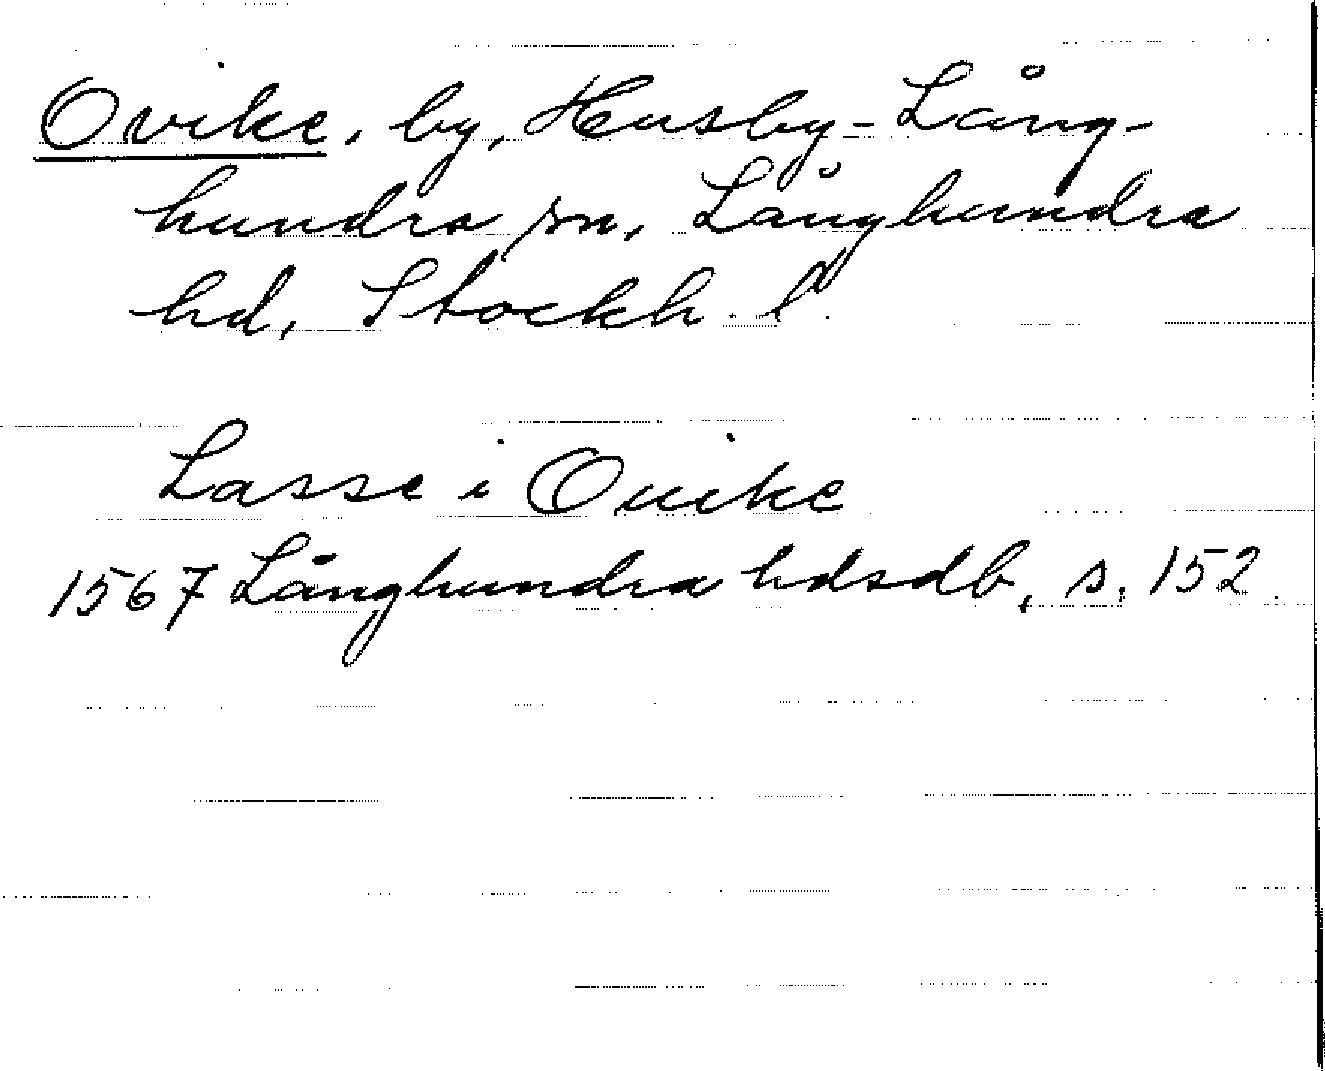 Ovike, by, Husby-Lång-
hundra sn, Långhundra
hd, Stockh. l.
Lasse i Ouike
1567 Långhundra hdsdb, s. 152.